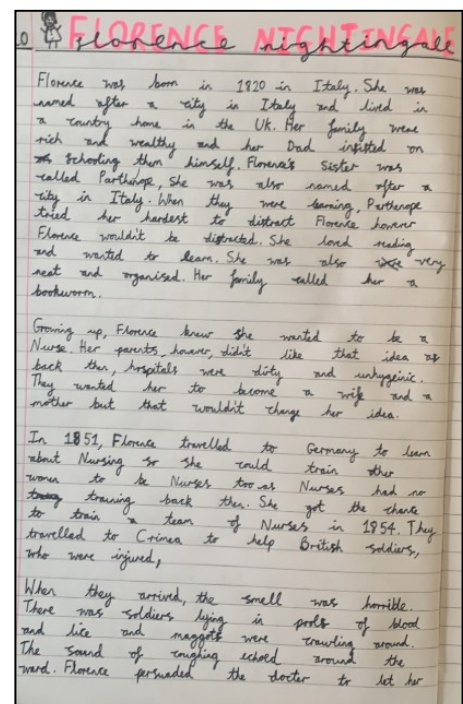 FLORENCE NIGHTINGALE
florence nightingale
Florence was born in 1820 in Italy. She was
named after a city in Italy and lived in
a country home in the UK. Her family were
rich and wealthy and her Dad insisted on
schooling them himself. Florence's sister was
called Parthenope, she was also named after a
city in Italy. When they were learning, Parthenope
tried her hardest to distract Florence however
Florence wouldn't be distracted. She loved reading
and wanted to learn. She was also very
neat and organised. Her family called her a
bookworm.
Growing up, Florence knew she wanted to be a
Nurse. Her parents, however, didn't like that idea as
back then, hospitals were dirty and unhygeinic.
They wanted her to become a wife and a
mother but that wouldn't change her idea.
In 1851, Florence travelled to Germany to learn
about Nursing so she could train other
women to be Nurses too as Nurses had no
training back then. She got the chance
to train a team of Nurses in 1854. They
travelled to Crimea to help British soldiers,
who were injured,
When they arrived, the smell was horrible.
There was soldiers lying in pools of blood
and lice and maggots were crawling around.
The sound of coughing echoed around the
ward. Florence persuaded the docter to let her